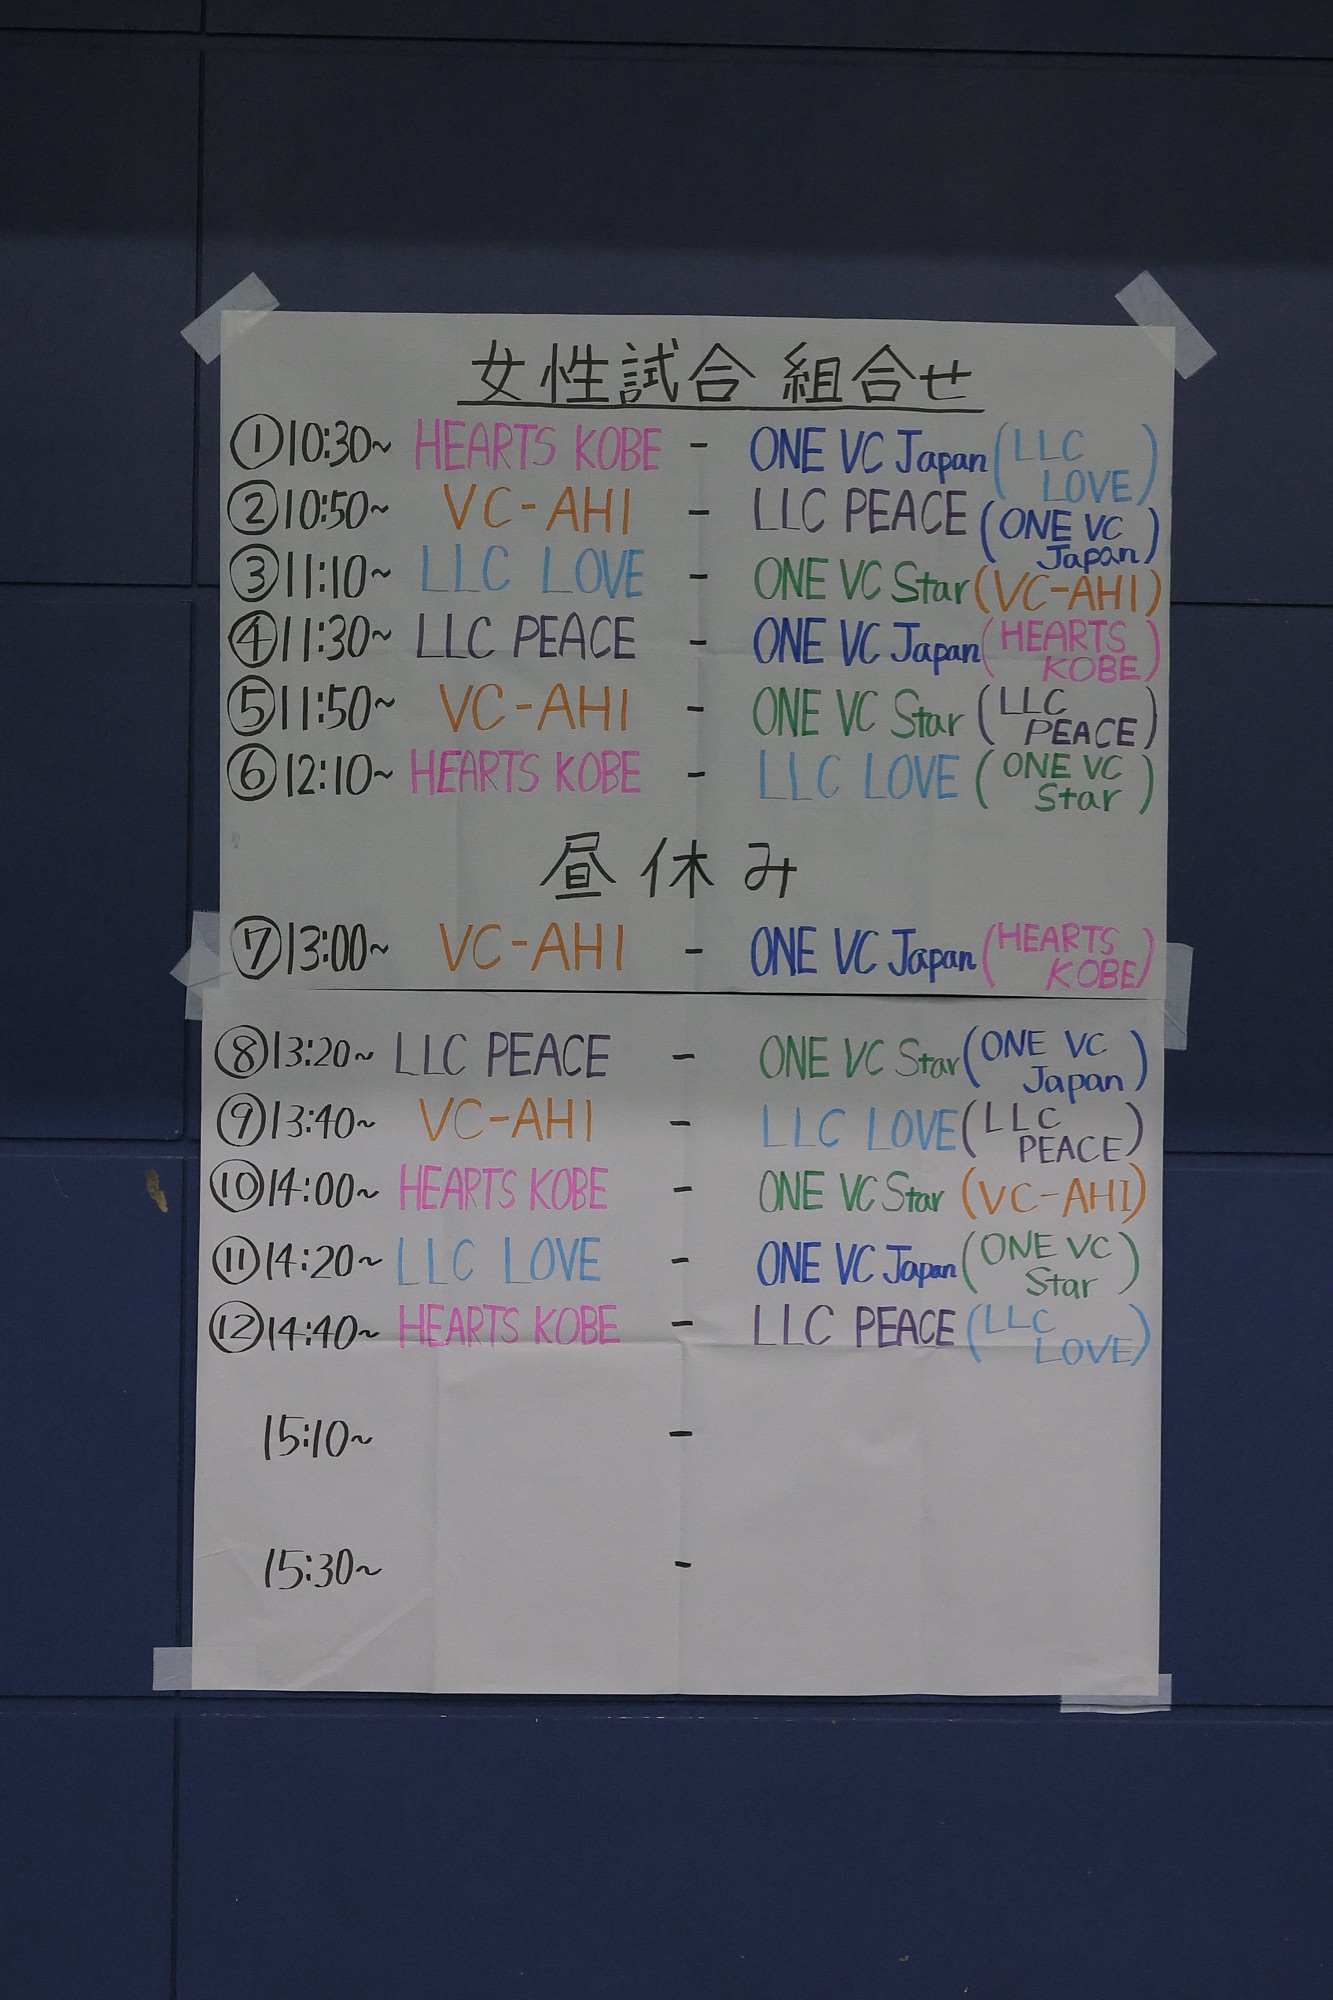 女性試合 組合せ
①10:30~ HEARTS KOBE - ONE VC Japan (LLC LOVE)
②10:50~ VC-AHI - LLC PEACE (ONE VC Japan)
③11:10~ LLC LOVE - ONE VC Star (VC-AHI)
④11:30~ LLC PEACE - ONE VC Japan (HEARTS KOBE)
⑤11:50~ VC-AHI - ONE VC Star (LLC PEACE)
⑥12:10~ HEARTS KOBE - LLC LOVE (ONE VC Star)
昼休み
⑦13:00~ VC-AHI - ONE VC Japan (HEARTS KOBE)
⑧13:20~ LLC PEACE - ONE VC Star (ONE VC Japan)
⑨13:40~ VC-AHI - LLC LOVE (LLC PEACE)
⑩14:00~ HEARTS KOBE - ONE VC Star (VC-AHI)
⑪14:20~ LLC LOVE - ONE VC Japan (ONE VC Star)
⑫14:40~ HEARTS KOBE - LLC PEACE (LLC LOVE)
15:10~ -
15:30~ -